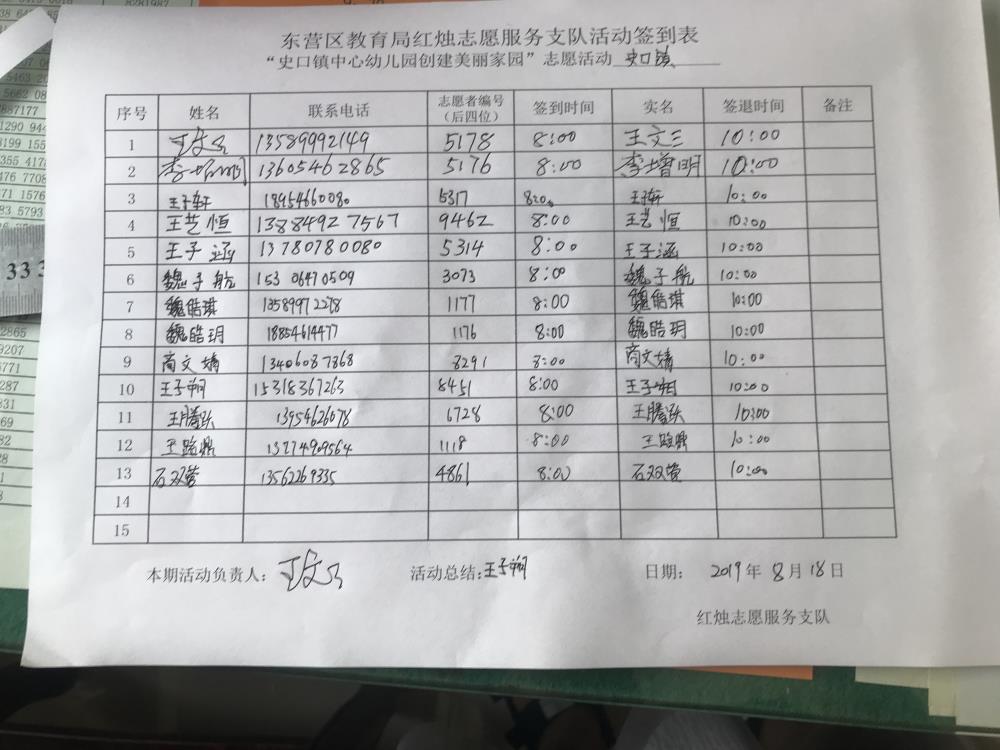 东营区教育局红烛志愿服务支队活动签到表
“史口镇中心幼儿园创建美丽家园”志愿活动 史口镇
序号 姓名 联系电话 志愿者编号（后四位） 签到时间 实名 签退时间 备注
1 王文三 13589992149 5178 8:00 王文三 10:00
2 李增明 13605462865 5176 8:00 李增明 10:00
3 王子轩 18954660080 5317 8:00 王子轩 10:00
4 王艺恒 13884927567 9462 8:00 王艺恒 10:00
5 王子涵 13780780080 5314 8:00 王子涵 10:00
6 魏子航 15306470509 3073 8:00 魏子航 10:00
7 魏皓琪 13589972278 1177 8:00 魏皓琪 10:00
8 魏皓玥 18854614477 1176 8:00 魏皓玥 10:00
9 商文婧 13406087868 8291 8:00 商文婧 10:00
10 王子朔 15318367263 8451 8:00 王子朔 10:00
11 王腾跃 13954626078 6728 8:00 王腾跃 10:00
12 王路鼎 13274909564 1118 8:00 王路鼎 10:00
13 石双莹 13562269335 4861 8:00 石双莹 10:00
14
15
本期活动负责人： 王文三 活动总结：王子朔 日期： 2019年 8月18日
红烛志愿服务支队